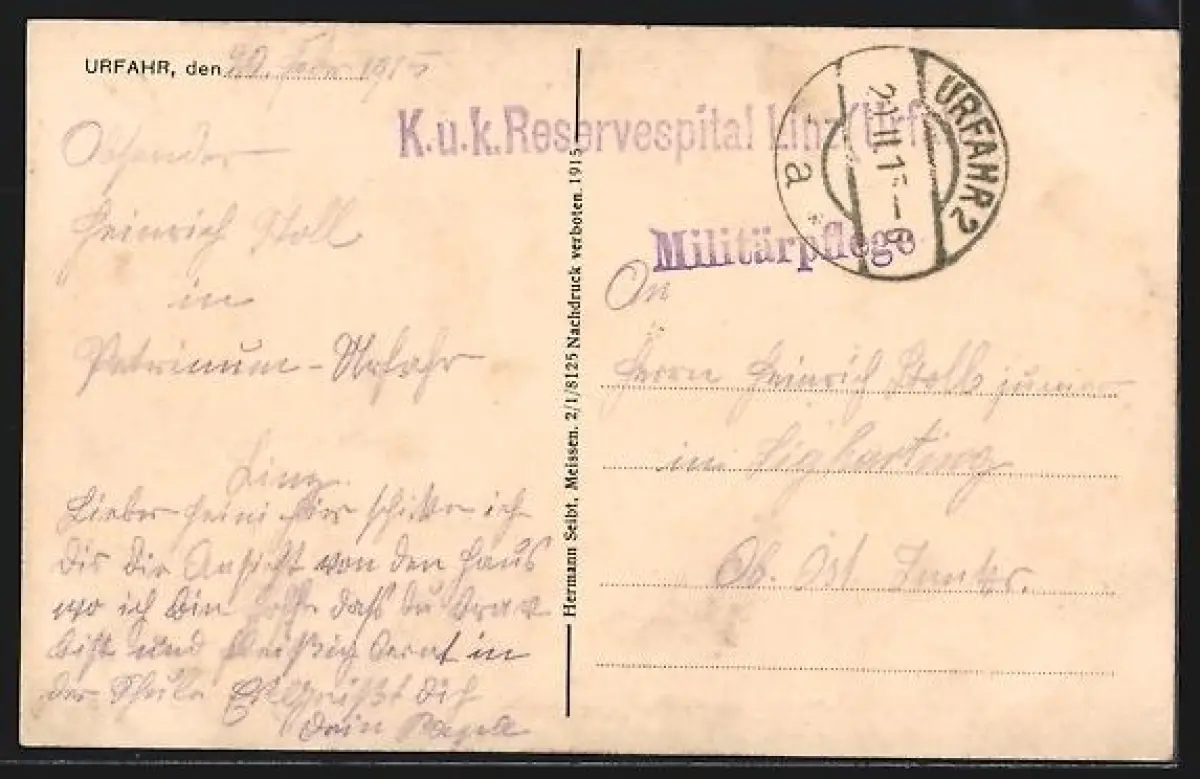 URFAHR, den 20. Febr 1915
K.u.k. Reservespital Linz (Urf
URFAHR 2
21.II.15-6
a
*
Militärpflege
Absender
Heinrich Stoll
in
Petrinum - Urfahr
Linz.
Lieber Heini hier schike ich
dir die Ansicht von den Haus
wo ich bin hoffe daß du brav
bist und fleißig lernst in
der Schule Es grüßt dich
dein
An
Herrn Heinrich Stoll junior
in Sigharting
Ob. Öst
Hermann Seibt, Meissen. 2/1/8125 Nachdruck verboten. 1915